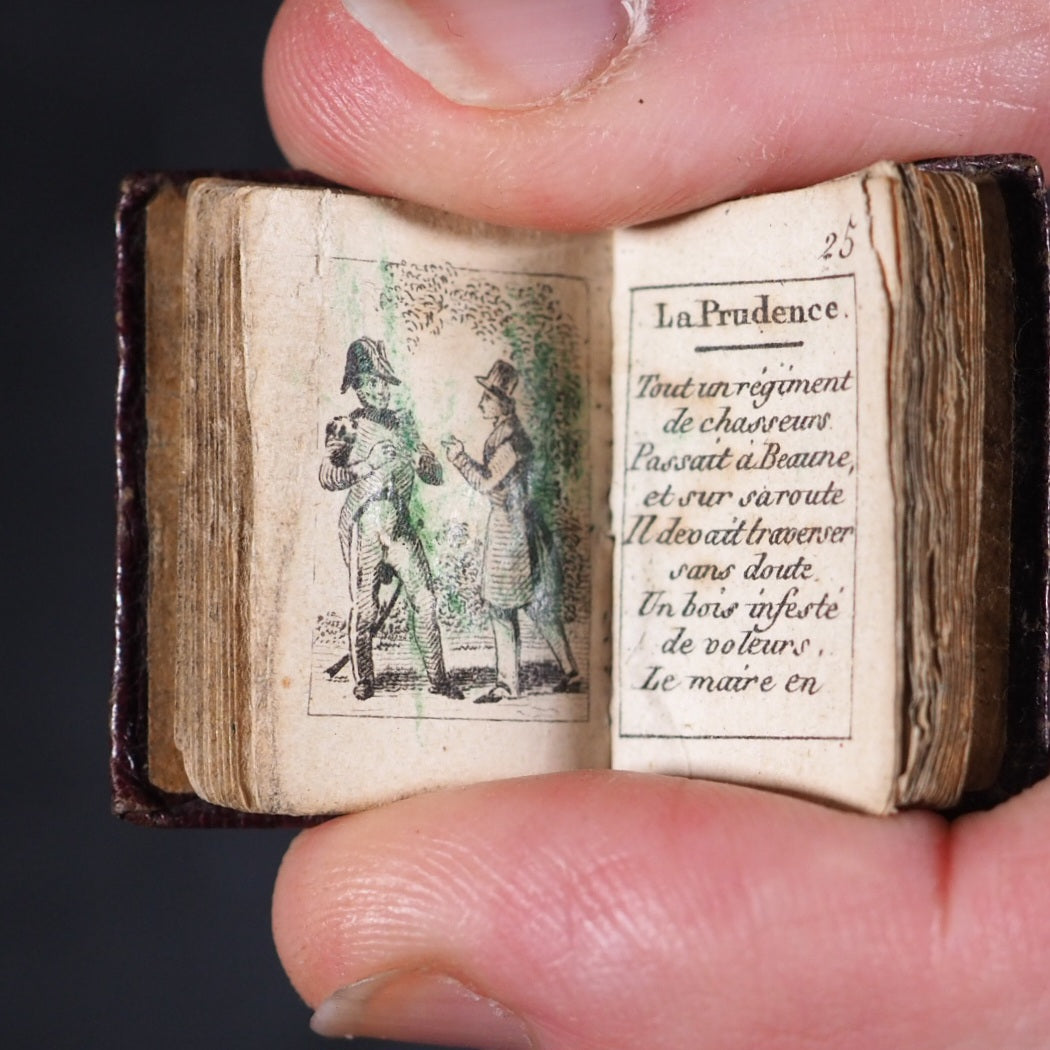 25
La Prudence.
Tout un régiment
de chasseurs
Passait à Beaune,
et sur sa route
Il devait traverser
sans doute
Un bois infesté
de voleurs.
Le maire en